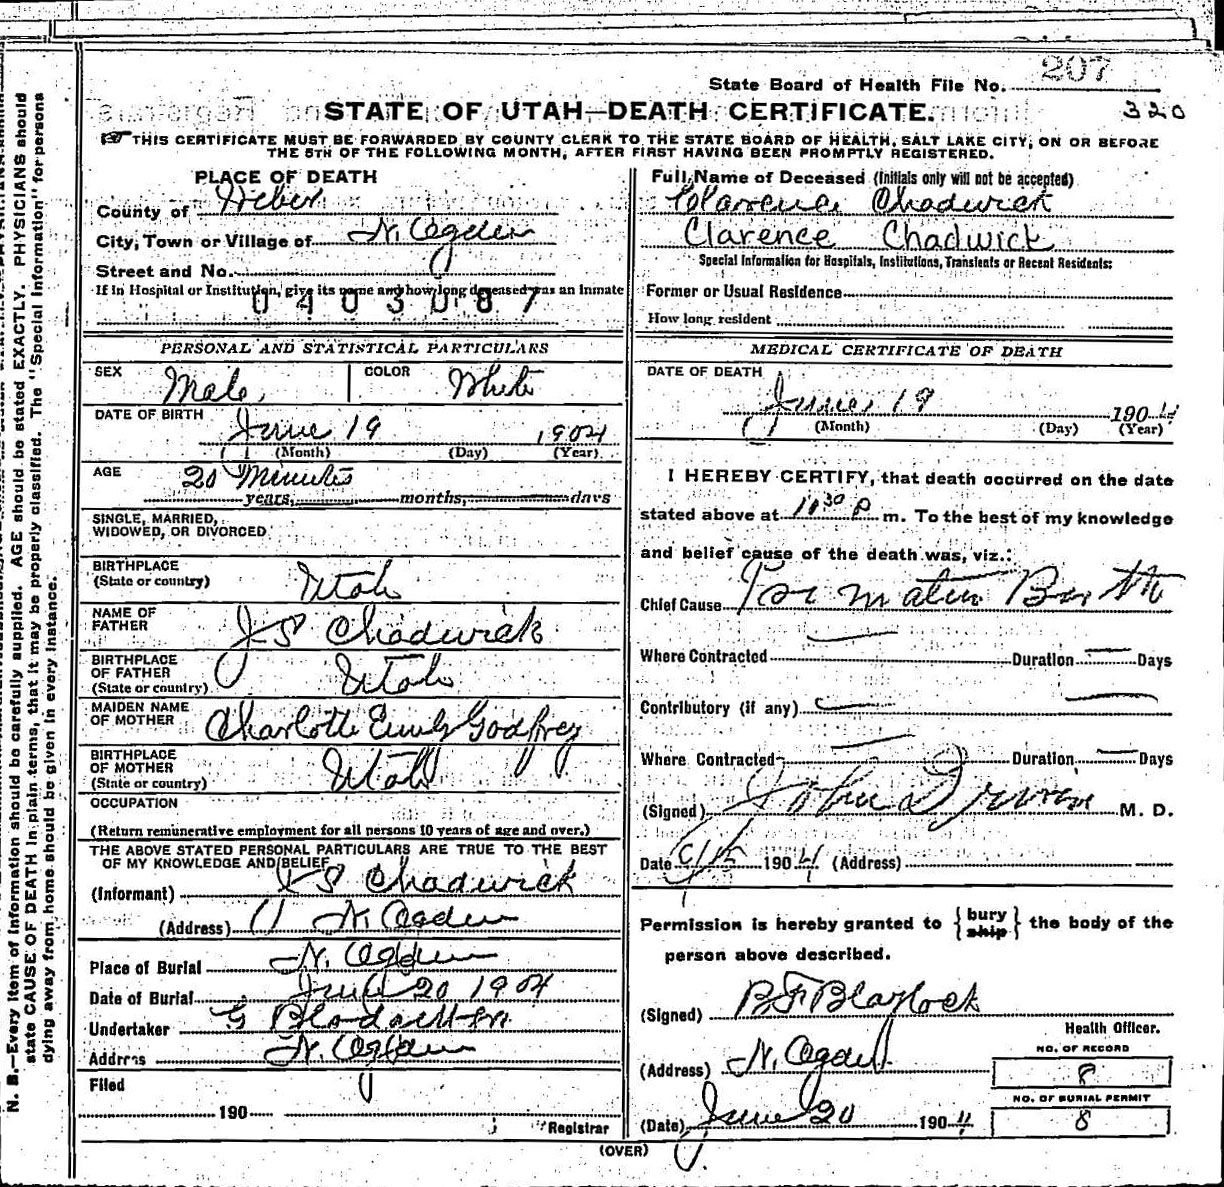 State Board of Health File No. 207
320
STATE OF UTAH—DEATH CERTIFICATE.
THIS CERTIFICATE MUST BE FORWARDED BY COUNTY CLERK TO THE STATE BOARD OF HEALTH, SALT LAKE CITY, ON OR BEFORE
THE 5TH OF THE FOLLOWING MONTH, AFTER FIRST HAVING BEEN PROMPTLY REGISTERED.
N. B.—Every item of information should be carefully supplied. AGE should be stated EXACTLY. PHYSICIANS should
state CAUSE OF DEATH in plain terms, that it may be properly classified. The "Special Information" for persons
dying away from home should be given in every instance.
PLACE OF DEATH
County of Weber
City, Town or Village of N. Ogden
Street and No.
If in Hospital or Institution, give its name and how long deceased was an inmate
0403087
PERSONAL AND STATISTICAL PARTICULARS
SEX Male COLOR White
DATE OF BIRTH
June 19 1904
(Month) (Day) (Year)
AGE 20 Minutes
years, months, days
SINGLE, MARRIED,
WIDOWED, OR DIVORCED
BIRTHPLACE
(State or country) Utah
NAME OF
FATHER J S Chadwick
BIRTHPLACE
OF FATHER
(State or country) Utah
MAIDEN NAME
OF MOTHER Charlotte Emily Godfrey
BIRTHPLACE
OF MOTHER
(State or country) Utah
OCCUPATION
(Return remunerative employment for all persons 10 years of age and over.)
THE ABOVE STATED PERSONAL PARTICULARS ARE TRUE TO THE BEST
OF MY KNOWLEDGE AND BELIEF
(Informant) J S Chadwick
(Address) N. Ogden
Place of Burial N. Ogden
Date of Burial June 20 1904
Undertaker G
Address N. Ogden
Filed
190
Registrar
Full Name of Deceased (Initials only will not be accepted)
Clarence Chadwick
Clarence Chadwick
Special Information for Hospitals, Institutions, Transients or Recent Residents:
Former or Usual Residence
How long resident
MEDICAL CERTIFICATE OF DEATH
DATE OF DEATH
June 19 1904
(Month) (Day) (Year)
I HEREBY CERTIFY, that death occurred on the date
stated above at 10 30 P m. To the best of my knowledge
and belief cause of the death was, viz.:
Chief Cause Birth
Where Contracted Duration Days
Contributory (if any)
Where Contracted Duration Days
(Signed) John D M. D.
Date 1904 (Address)
Permission is hereby granted to { bury ship } the body of the
person above described.
(Signed) B F Blaylock
Health Officer.
(Address) N. Ogden
NO. OF RECORD
8
NO. OF BURIAL PERMIT
8
(Date) June 20 1904
(OVER)